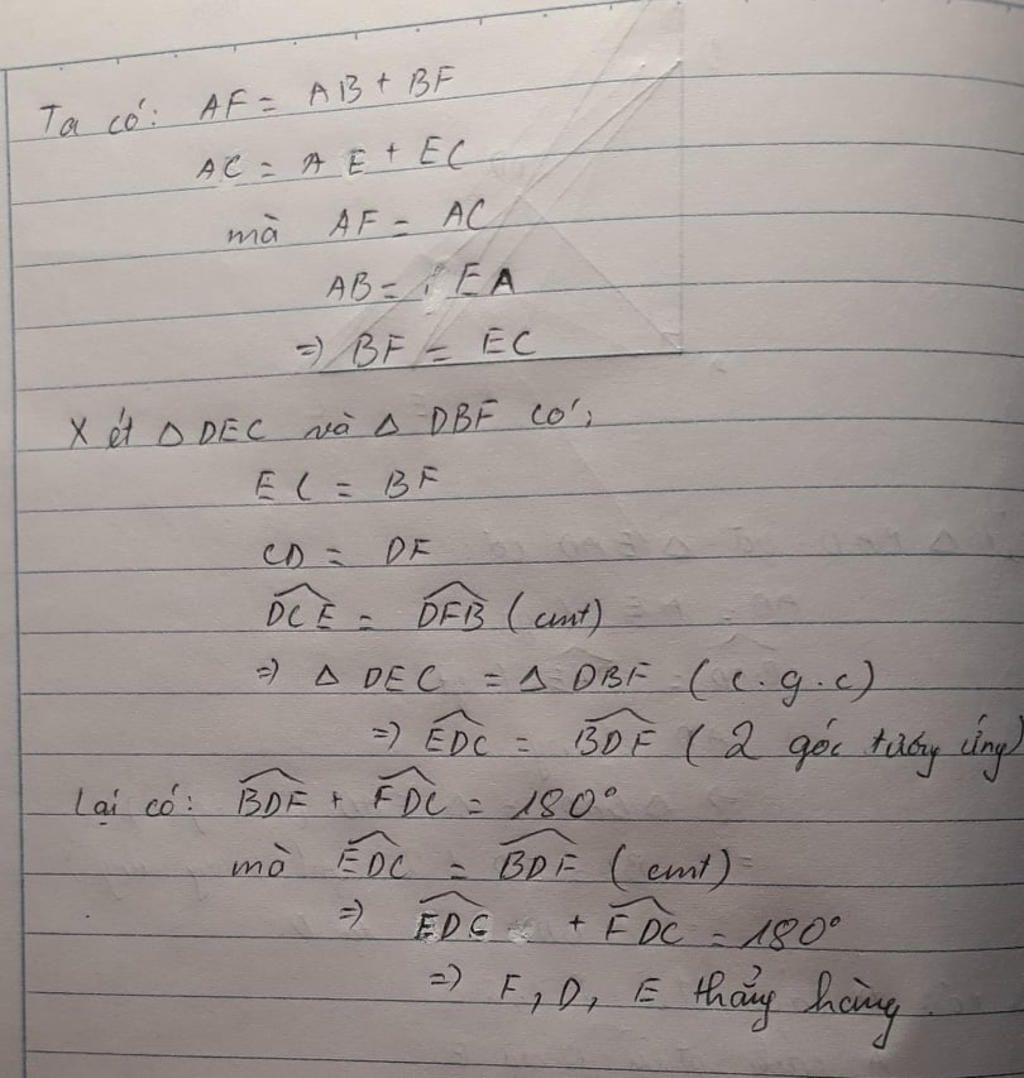 Ta có: AF = AB + BF
AC = AE + EC
mà AF = AC
AB = EA
=> BF = EC
Xét △ DEC và △ DBF có:
EC = BF
CD = DF
\widehat{DCE} = \widehat{DFB} (cmt)
=> △ DEC = △ DBF (c.g.c)
=> \widehat{EDC} = \widehat{BDF} (2 góc tương ứng)
Lại có: \widehat{BDF} + \widehat{FDC} = 180°
mà \widehat{EDC} = \widehat{BDF} (cmt)
=> \widehat{EDC} + \widehat{FDC} = 180°
=> F, D, E thẳng hàng.